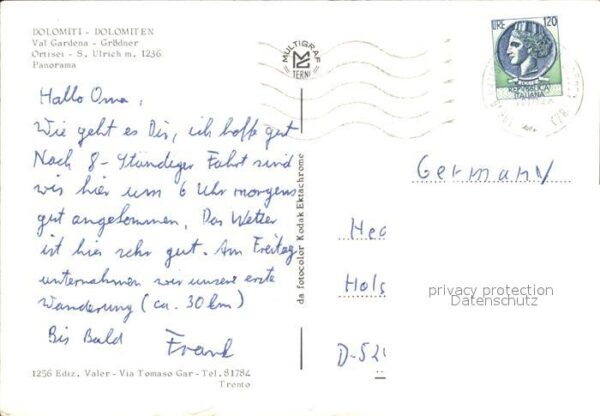 DOLOMITI - DOLOMITEN
Val Gardena - Grödner
Ortisei - S. Ulrich m. 1236
Panorama
Hallo Oma,
Wie geht es Dir, ich hoffe gut
Nach 8-Stündiger Fahrt sind
wir hier um 6 Uhr morgens
gut angekommen. Das Wetter
ist hier sehr gut. Am Freitag
unternahmen wir unsere erste
Wanderung (ca. 30 km)
Bis Bald
Frank
1256 Ediz. Valer - Via Tomaso Gar - Tel. 81784
Trento
da fotocolor Kodak Ektachrome
MULTIGRAF
TERNI
LIRE 120
REPUBBLICA
ITALIANA
Germany
Hec
Hols
D-52
privacy protection
Datenschutz